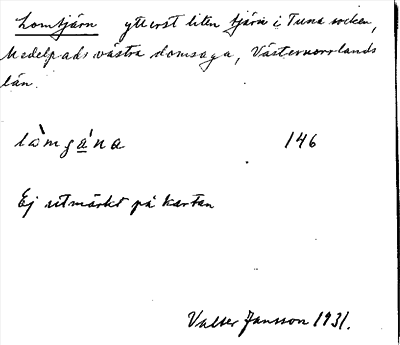 Lomtjärn ytterst liten tjärn i Tuna socken,
Medelpads västra domsaga, Västernorrlands
län.
làmgá̲na 146
Ej utmärkt på kartan
Valter Jansson 1931.